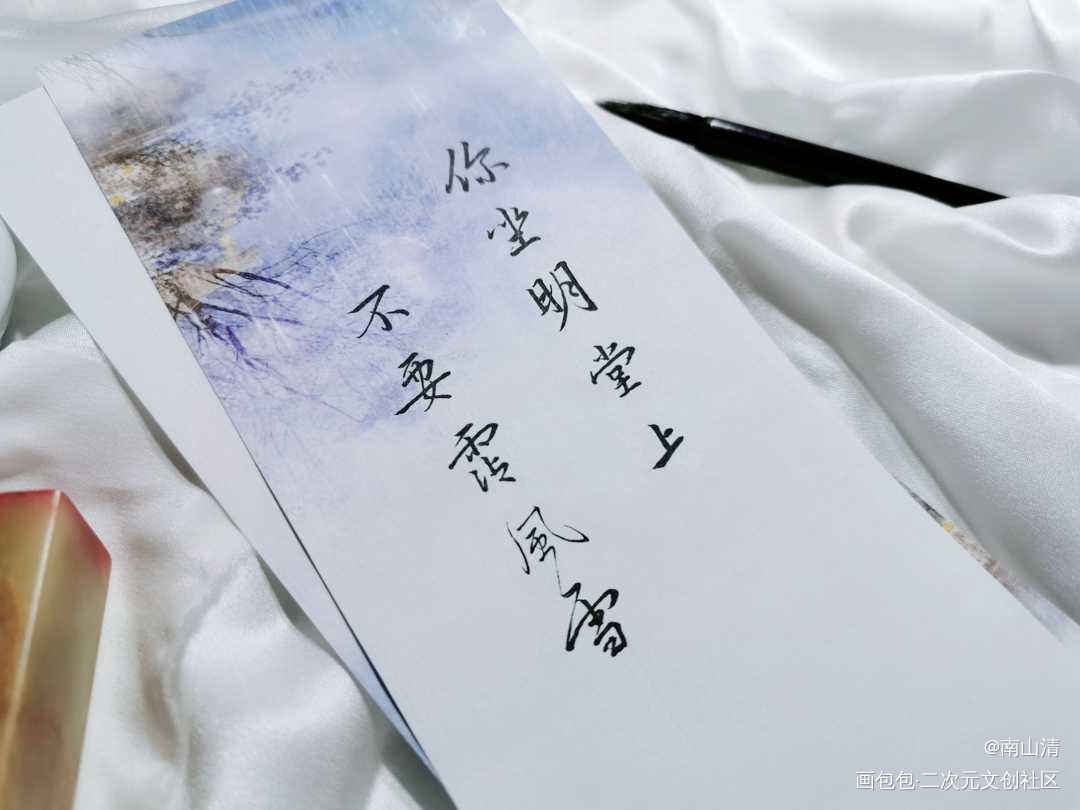 你坐明堂上
不要霑風雪
@南山清
画包包·二次元文创社区